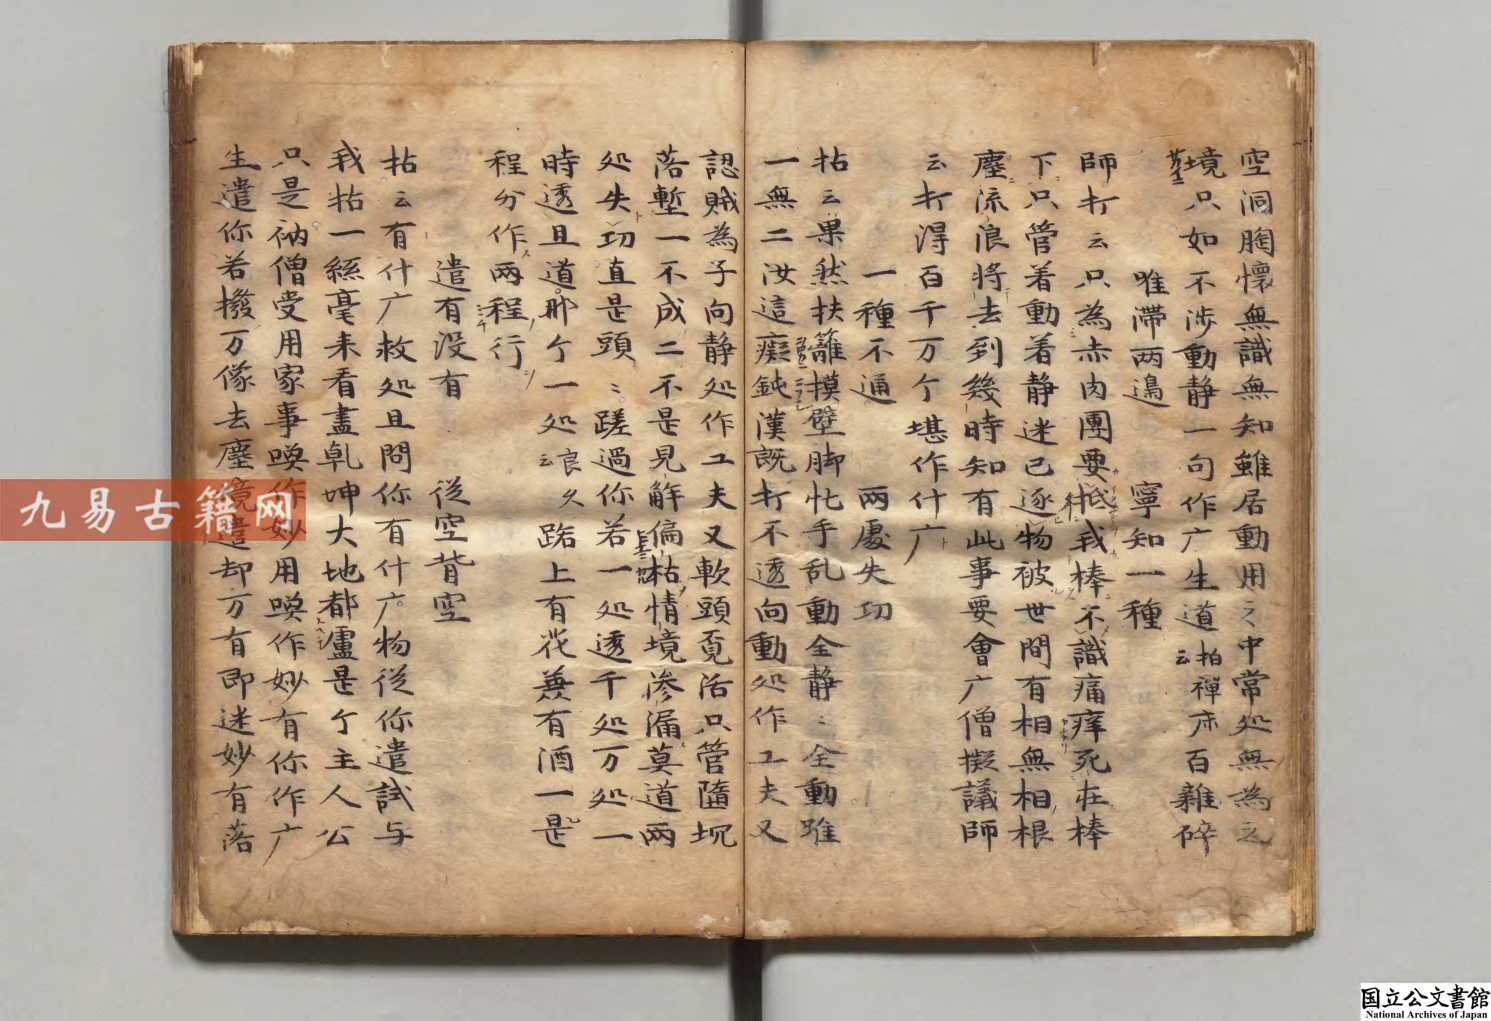 空洞胸懷無識無知雖居動用之中常処無為之
境只如不涉動静一句作广生道拍禅床云百雜碎
唯滞两邉　寧知一種
師打云只為赤肉團要抵我棒不識痛痒死在棒
下只管着動着静迷己逐物被世間有相無相根
塵流浪將去到幾時知有此事要會广僧擬議師
云打淂百千万个堪作什广
一種不通　两處失功
拈云果然扶籬摸壁脚忙手乱動全静〻全動唯
一無二汝這癡鈍漢既打不透向動処作工夫又
認賊為子向静処作工夫又軟頭覔活只管隨坑
落塹一不成二不是見解偏枯情境渗漏莫道两
処失功直是頭〻蹉過你若一処透千処万処一
時透且道那个一処良久云路上有花兼有酒一是
程分作两程行
遣有没有　從空背空
拈云有什广救処且問你有什广物從你遣試与
我拈一絲毫来看盡乹坤大地都盧是个主人公
只是衲僧受用家事喚作妙用喚作妙有你作广
生遣你若撥万像去塵境遣却万有即迷妙有落
九易古籍网
国立公文書館
National Archives of Japan